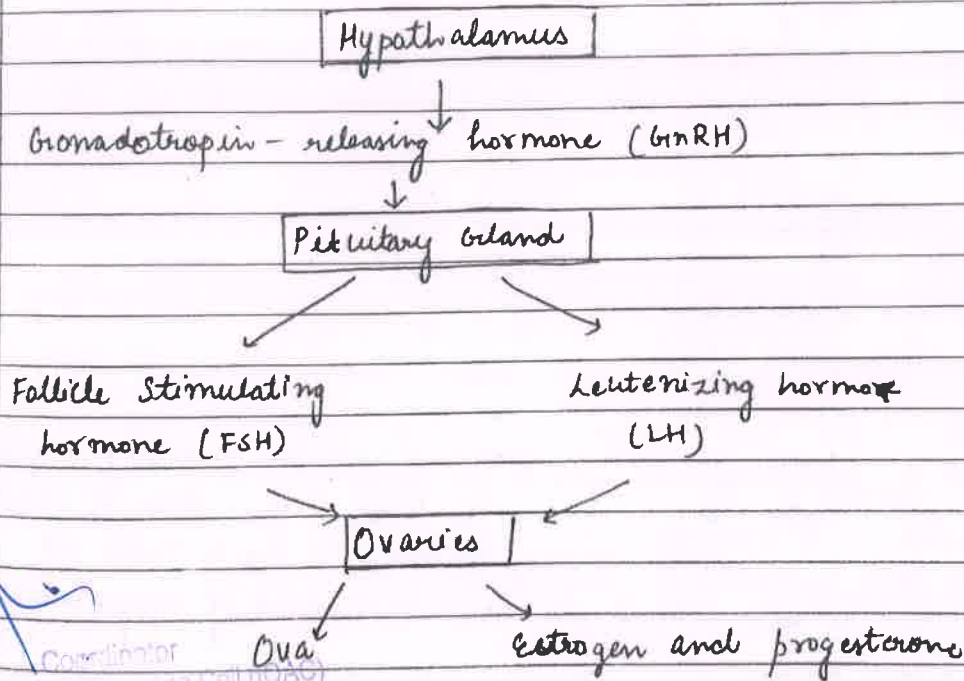 Hypothalamus
Gonadotropin - releasing hormone (GnRH)
Pituitary Gland
Follicle Stimulating
hormone (FSH)
Leutenizing hormone
(LH)
Ovaries
Ova
Estrogen and progesterone
Coordinator